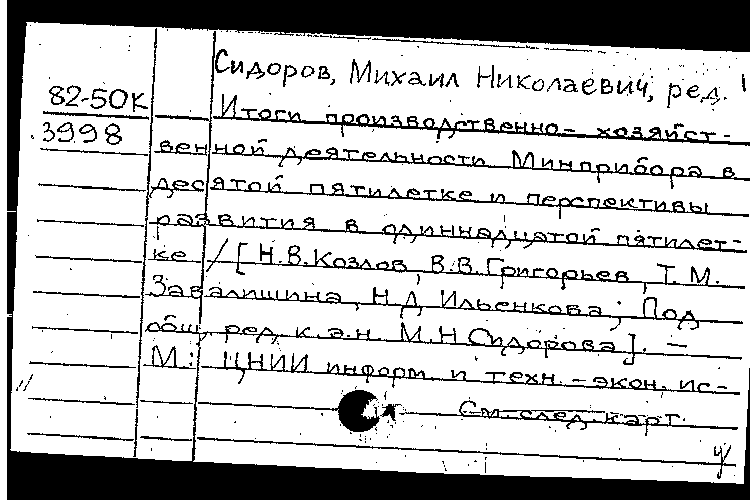 Сидоров, Михаил Николаевич, ред.
82-50К
3998
Итоги производственно-хозяйст-
венной деятельности Минприбора в
десятой пятилетке и перспективы
развития в одиннадцатой пятилет-
ке / [Н.В.Козлов, В.В.Григорьев, Т.М.
Завалишина, Н.Д. Ильенкова; Под
общ. ред. к.э.н. М.Н Сидорова]. -
М.: ЦНИИ информ. и техн.-экон. ис-
См. след. карт.